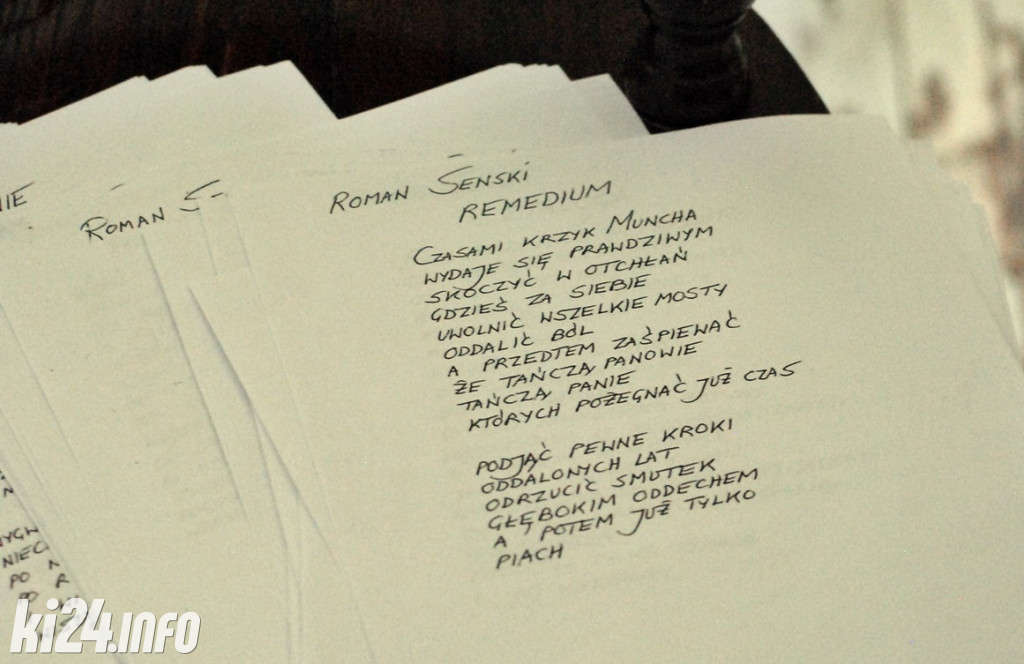 NIE
ROMAN S
ROMAN SENSKI
REMEDIUM
CZASAMI KRZYK MUNCHA
WYDAJE SIĘ PRAWDZIWYM
SKOCZYĆ W OTCHŁAŃ
GDZIEŚ ZA SIEBIE
UWOLNIĆ WSZELKIE MOSTY
ODDALIĆ BÓL
A PRZEDTEM ZAŚPIEWAĆ
ŻE TAŃCZĄ PANOWIE
TAŃCZĄ PANIE
KTÓRYCH POŻEGNAĆ JUŻ CZAS
PODJĄĆ PEWNE KROKI
ODDALONYCH LAT
ODRZUCIĆ SMUTEK
GŁĘBOKIM ODDECHEM
A POTEM JUŻ TYLKO
PIACH
PO
ki24.info